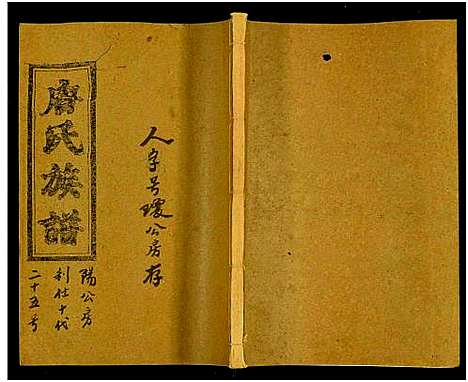 唐氏族譜
人字号瓊公房存
陽公房
利仕十代
二十五号